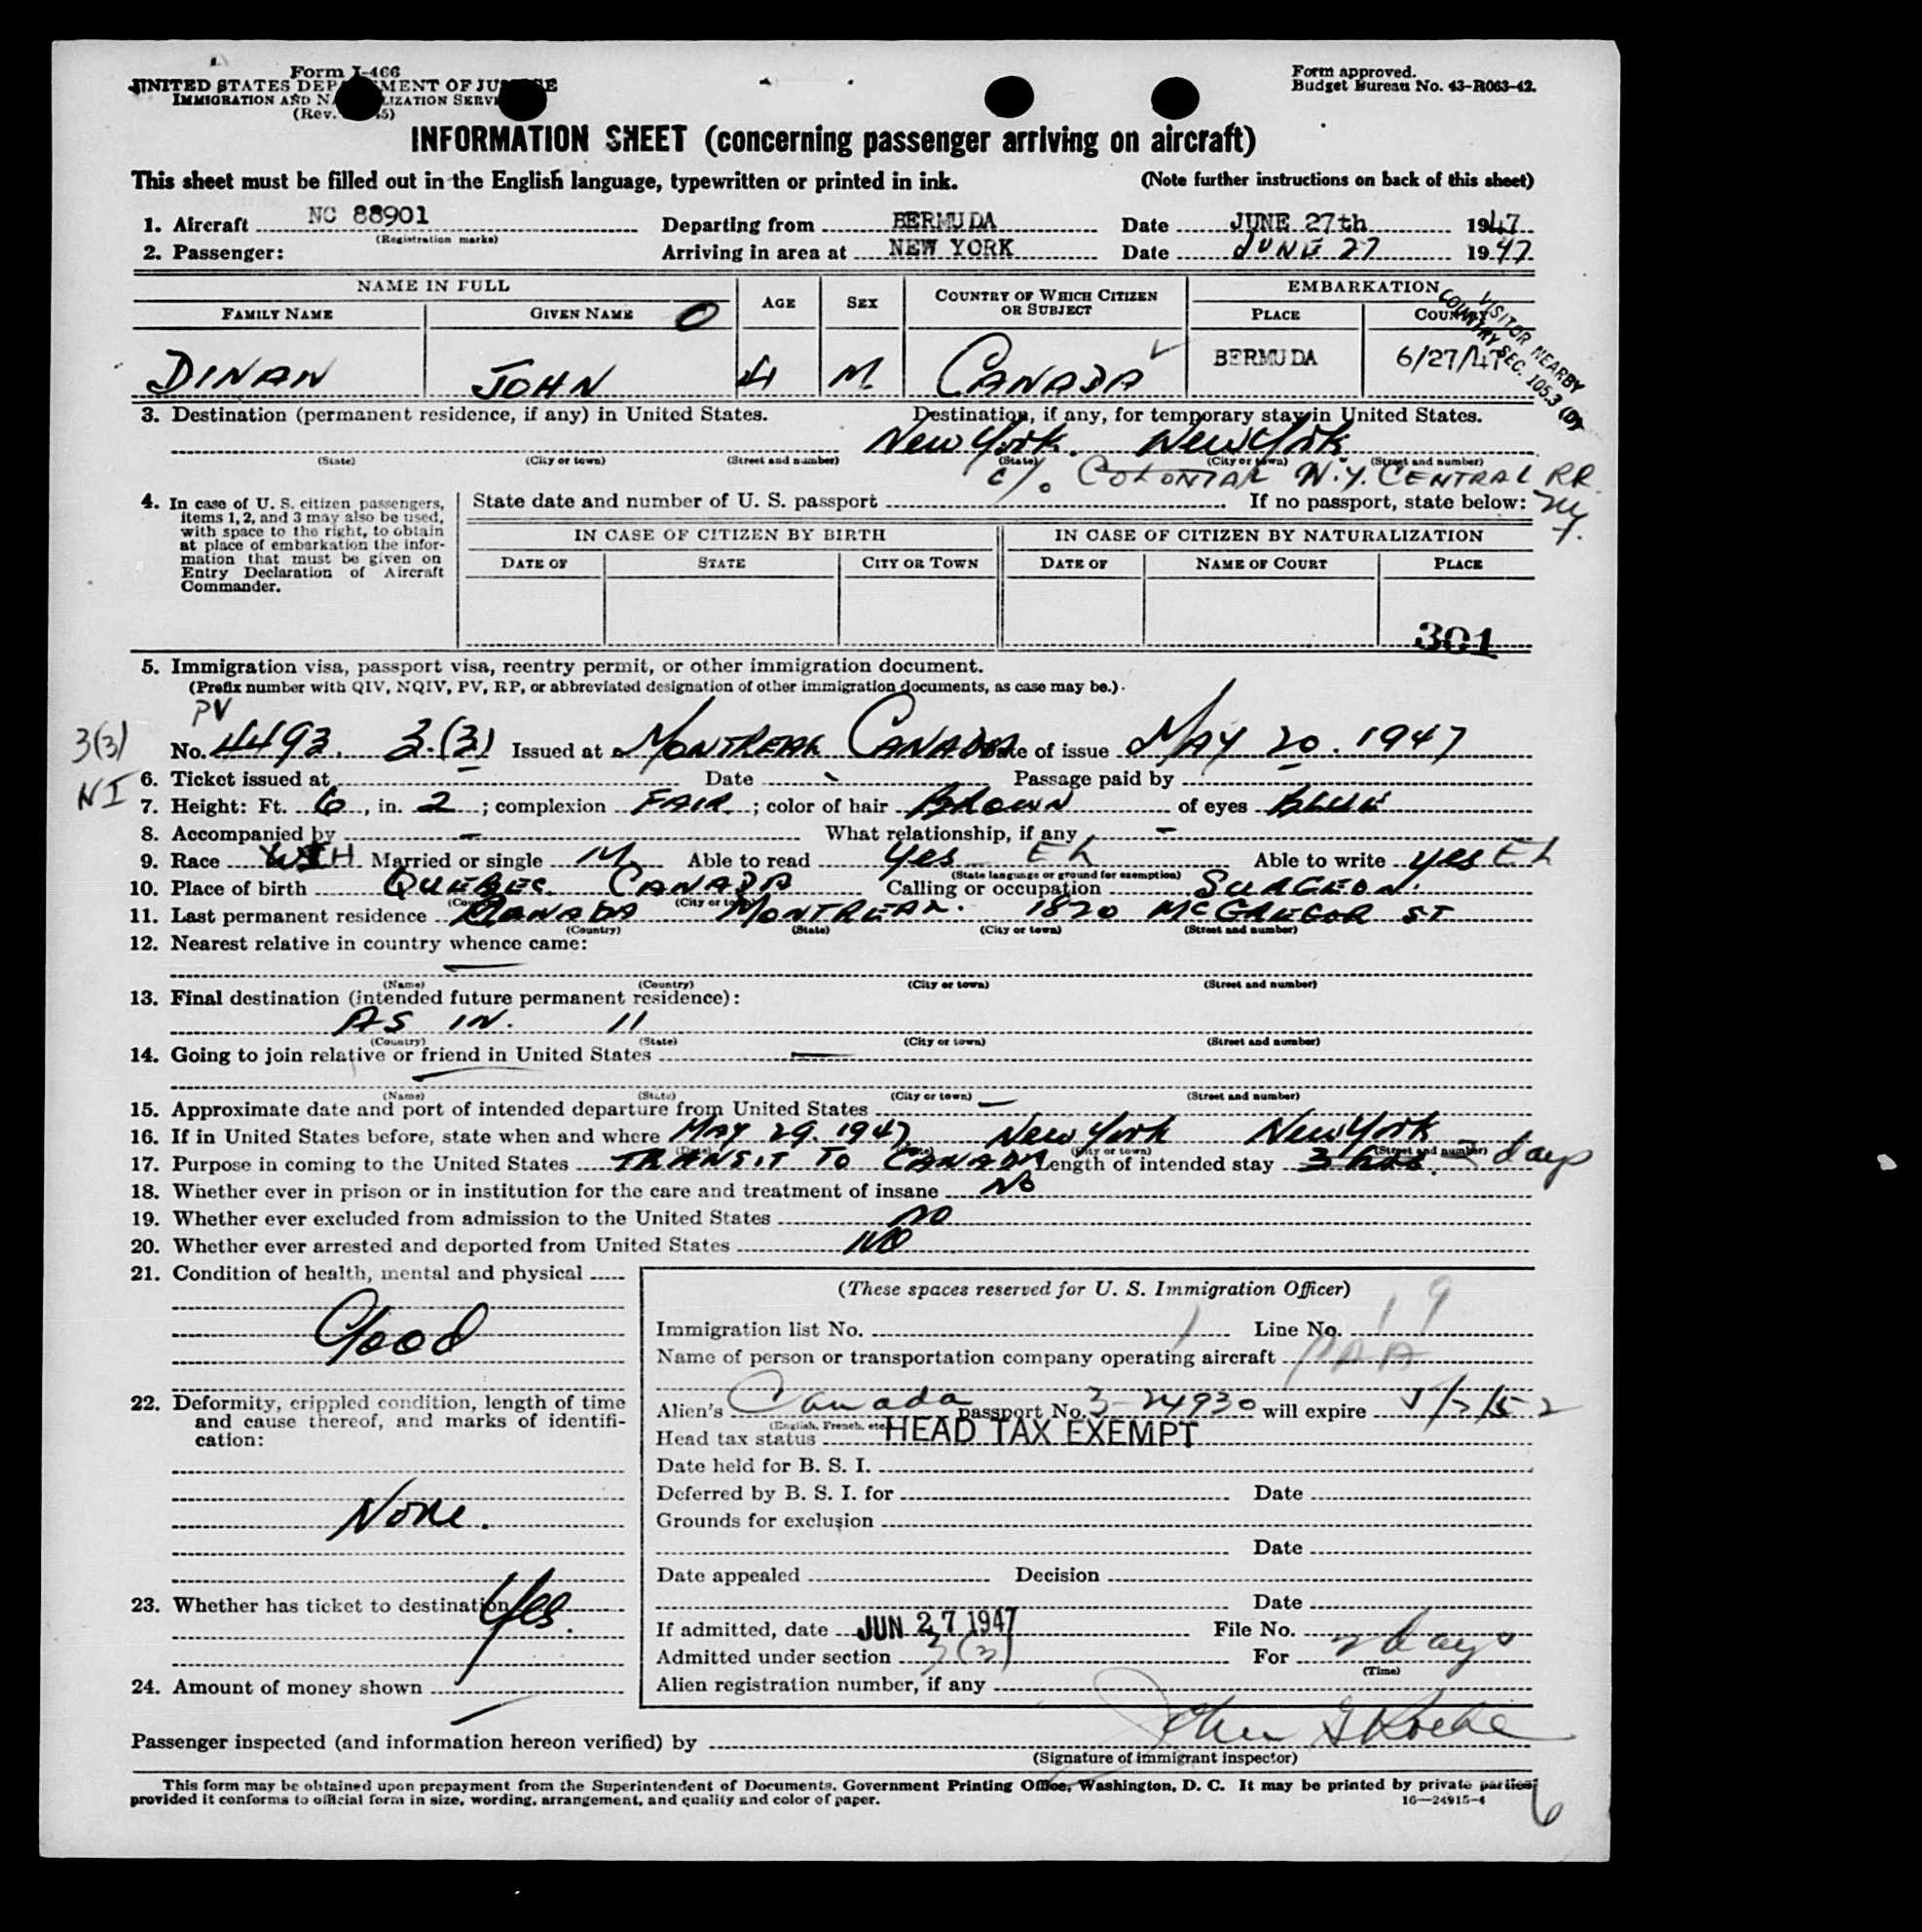 Form I-466
UNITED STATES DEP MENT OF JU E
IMMIGRATION AND N LIZATION SERVI
(Rev. 5)
Form approved.
Budget Bureau No. 43-R063-42.
INFORMATION SHEET (concerning passenger arriving on aircraft)
This sheet must be filled out in the English language, typewritten or printed in ink. (Note further instructions on back of this sheet)
1. Aircraft NC 88901 Departing from BERMUDA Date JUNE 27th 1947
(Registration marks)
2. Passenger: Arriving in area at NEW YORK Date JUNE 27 1947
NAME IN FULL AGE SEX COUNTRY OF WHICH CITIZEN OR SUBJECT EMBARKATION
FAMILY NAME GIVEN NAME O PLACE COUNTRY
VISITOR NEARBY
COUNTRY SEC. 105.3 (D)
DINAN JOHN M. CANADA BERMUDA 6/27/47
3. Destination (permanent residence, if any) in United States. Destination, if any, for temporary stay in United States.
New York. New York
(State) (City or town) (Street and number) (State) (City or town) (Street and number)
c/o COLONIAL N.Y. CENTRAL RR.
NY.
4. In case of U. S. citizen passengers, items 1, 2, and 3 may also be used, with space to the right, to obtain at place of embarkation the information that must be given on Entry Declaration of Aircraft Commander.
State date and number of U. S. passport If no passport, state below:
IN CASE OF CITIZEN BY BIRTH IN CASE OF CITIZEN BY NATURALIZATION
DATE OF STATE CITY OR TOWN DATE OF NAME OF COURT PLACE
301
5. Immigration visa, passport visa, reentry permit, or other immigration document.
(Prefix number with QIV, NQIV, PV, RP, or abbreviated designation of other immigration documents, as case may be.)
PV
3(3)
No. 4493. 3.(3) Issued at MONTREAL CANADA Date of issue MAY 20. 1947
NI
6. Ticket issued at Date Passage paid by
7. Height: Ft. 6, in. 2; complexion FAIR.; color of hair BROWN of eyes BLUE
8. Accompanied by - What relationship, if any -
9. Race Married or single M. Able to read yes Able to write yes
(State language or ground for exemption)
10. Place of birth QUEBEC. CANADA Calling or occupation SURGEON.
(Country) (City or town)
11. Last permanent residence CANADA MONTREAL. 1820 McGREGOR ST
(Country) (State) (City or town) (Street and number)
12. Nearest relative in country whence came:
(Name) (Country) (City or town) (Street and number)
13. Final destination (intended future permanent residence):
AS IN. 11
(Country) (State) (City or town) (Street and number)
14. Going to join relative or friend in United States
(Name) (State) (City or town) (Street and number)
15. Approximate date and port of intended departure from United States -
16. If in United States before, state when and where MAY 29. 1947 New York New York
(Date) (State) (City or town) (Street and number)
17. Purpose in coming to the United States TRANSIT TO CANADA Length of intended stay 3 hrs. 2 days
18. Whether ever in prison or in institution for the care and treatment of insane No
19. Whether ever excluded from admission to the United States no
20. Whether ever arrested and deported from United States NO
21. Condition of health, mental and physical
Good
22. Deformity, crippled condition, length of time and cause thereof, and marks of identification:
None.
23. Whether has ticket to destination Yes.
24. Amount of money shown
(These spaces reserved for U. S. Immigration Officer)
Immigration list No. 1 Line No. 19
Name of person or transportation company operating aircraft PAA
Alien's Canada passport No. 3-24930 will expire 5/2/52
(English, French, etc.)
Head tax status HEAD TAX EXEMPT
Date held for B. S. I.
Deferred by B. S. I. for Date
Grounds for exclusion
Date
Date appealed Decision
Date
If admitted, date JUN 27 1947 File No.
Admitted under section 3(3) For 2 days
(Time)
Alien registration number, if any
Passenger inspected (and information hereon verified) by
(Signature of immigrant inspector)
This form may be obtained upon prepayment from the Superintendent of Documents, Government Printing Office, Washington, D. C. It may be printed by private parties
provided it conforms to official form in size, wording, arrangement, and quality and color of paper. 16—24915-4
6